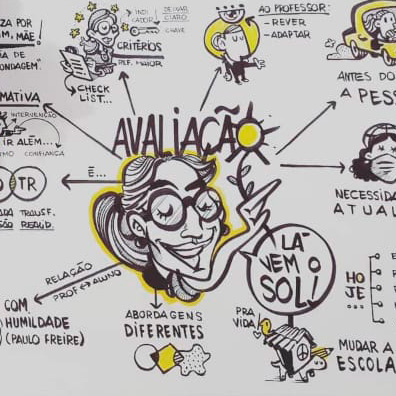 ZA POR
IM, MÃE!
IA DE
"ONDAGEM"
MATIVA
INTERVENÇÃO
IR ALÉM...
CONFIANÇA
TR
TRANSF.
REALID.
→ INDI
CADOR
DEIXAR
CLARO
CHAVE
CRITÉRIOS
REF. MAIOR
CHECK
LIST...
AO PROFESSOR:
- REVER
- ADAPTAR
ANTES DO
A PESS
AVALIAÇÃO
É...
NECESSIDA
ATUAL
LÁ
VEM O
SOL!
RELAÇÃO
PROF ↔ ALUNO
COM
HUMILDADE
(PAULO FREIRE)
ABORDAGENS
DIFERENTES
PRA
VIDA!
HO
JE
...
MUDAR A
ESCOLA